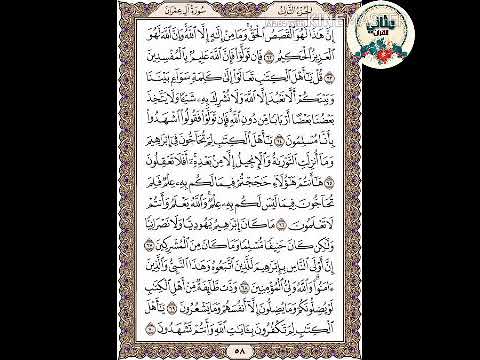 الجزء الثالث
سورة آل عمران
إِنَّ هَٰذَا لَهُوَ ٱلْقَصَصُ ٱلْحَقُّ وَمَا مِنْ إِلَٰهٍ إِلَّا ٱللَّهُ وَإِنَّ ٱللَّهَ لَهُوَ
ٱلْعَزِيزُ ٱلْحَكِيمُ ٦٢ فَإِن تَوَلَّوْا۟ فَإِنَّ ٱللَّهَ عَلِيمٌۢ بِٱلْمُفْسِدِينَ
٦٣ قُلْ يَٰٓأَهْلَ ٱلْكِتَٰبِ تَعَالَوْا۟ إِلَىٰ كَلِمَةٍ سَوَآءٍۭ بَيْنَنَا
وَبَيْنَكُمْ أَلَّا نَعْبُدَ إِلَّا ٱللَّهَ وَلَا نُشْرِكَ بِهِۦ شَيْـًٔا وَلَا يَتَّخِذَ
بَعْضُنَا بَعْضًا أَرْبَابًا مِّن دُونِ ٱللَّهِ فَإِن تَوَلَّوْا۟ فَقُولُوا۟ ٱشْهَدُوا۟
بِأَنَّا مُسْلِمُونَ ٦٤ يَٰٓأَهْلَ ٱلْكِتَٰبِ لِمَ تُحَآجُّونَ فِىٓ إِبْرَٰهِيمَ
وَمَآ أُنزِلَتِ ٱلتَّوْرَىٰةُ وَٱلْإِنجِيلُ إِلَّا مِنۢ بَعْدِهِۦٓ أَفَلَا تَعْقِلُونَ
٦٥ هَٰٓأَنتُمْ هَٰٓؤُلَآءِ حَٰجَجْتُمْ فِيمَا لَكُم بِهِۦ عِلْمٌ فَلِمَ
تُحَآجُّونَ فِيمَا لَيْسَ لَكُم بِهِۦ عِلْمٌ وَٱللَّهُ يَعْلَمُ وَأَنتُمْ
لَا تَعْلَمُونَ ٦٦ مَا كَانَ إِبْرَٰهِيمُ يَهُودِيًّا وَلَا نَصْرَانِيًّا
وَلَٰكِن كَانَ حَنِيفًا مُّسْلِمًا وَمَا كَانَ مِنَ ٱلْمُشْرِكِينَ ٦٧
إِنَّ أَوْلَى ٱلنَّاسِ بِإِبْرَٰهِيمَ لَلَّذِينَ ٱتَّبَعُوهُ وَهَٰذَا ٱلنَّبِىُّ وَٱلَّذِينَ
ءَامَنُوا۟ وَٱللَّهُ وَلِىُّ ٱلْمُؤْمِنِينَ ٦٨ وَدَّت طَّآئِفَةٌ مِّنْ أَهْلِ ٱلْكِتَٰبِ
لَوْ يُضِلُّونَكُمْ وَمَا يُضِلُّونَ إِلَّآ أَنفُسَهُمْ وَمَا يَشْعُرُونَ ٦٩ يَٰٓأَهْلَ
ٱلْكِتَٰبِ لِمَ تَكْفُرُونَ بِـَٔايَٰتِ ٱللَّهِ وَأَنتُمْ تَشْهَدُونَ ٧٠
٥٨